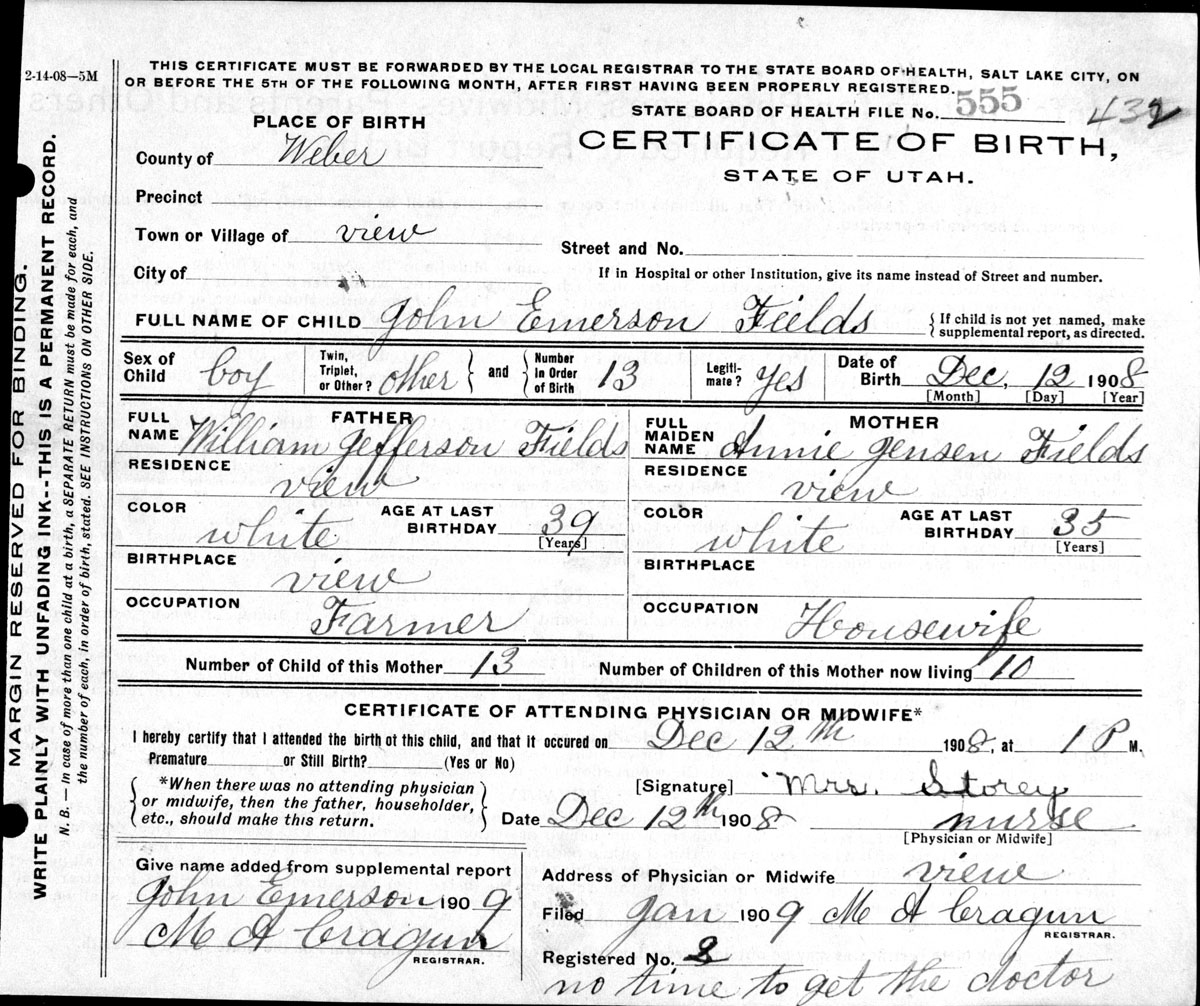 2-14-08—5M
THIS CERTIFICATE MUST BE FORWARDED BY THE LOCAL REGISTRAR TO THE STATE BOARD OF HEALTH, SALT LAKE CITY, ON
OR BEFORE THE 5TH OF THE FOLLOWING MONTH, AFTER FIRST HAVING BEEN PROPERLY REGISTERED.
STATE BOARD OF HEALTH FILE No. 555
432
PLACE OF BIRTH
CERTIFICATE OF BIRTH,
STATE OF UTAH.
County of Weber
Precinct
Town or Village of view
Street and No.
City of
If in Hospital or other Institution, give its name instead of Street and number.
FULL NAME OF CHILD John Emerson Fields
{ If child is not yet named, make
supplemental report, as directed.
Sex of Child boy
Twin, Triplet, or Other? other } and { Number In Order of Birth 13
Legiti-mate? yes
Date of Birth Dec, 12 1908
[Month] [Day] [Year]
FATHER
FULL NAME William Jefferson Fields
RESIDENCE
view
COLOR
white
AGE AT LAST BIRTHDAY 39
[Years]
BIRTHPLACE
view
OCCUPATION
Farmer
MOTHER
FULL MAIDEN NAME Annie Jensen Fields
RESIDENCE
view
COLOR
white
AGE AT LAST BIRTHDAY 35
[Years]
BIRTHPLACE
OCCUPATION
Housewife
Number of Child of this Mother 13 Number of Children of this Mother now living 10
CERTIFICATE OF ATTENDING PHYSICIAN OR MIDWIFE*
I hereby certify that I attended the birth of this child, and that it occured on Dec 12th 1908, at 1 P M.
Premature or Still Birth? (Yes or No)
{ *When there was no attending physician
or midwife, then the father, householder,
etc., should make this return. }
[Signature] Mrs. Storey
Date Dec 12th 1908 nurse
[Physician or Midwife]
Give name added from supplemental report
John Emerson 1909
M A Cragun
REGISTRAR.
Address of Physician or Midwife view
Filed Jan 1909 M A Cragun
REGISTRAR.
Registered No. 2
no time to get the doctor
MARGIN RESERVED FOR BINDING.
WRITE PLAINLY WITH UNFADING INK--THIS IS A PERMANENT RECORD.
N. B. — In case of more than one child at a birth, a SEPARATE RETURN must be made for each, and
the number of each, in order of birth, stated. SEE INSTRUCTIONS ON OTHER SIDE.